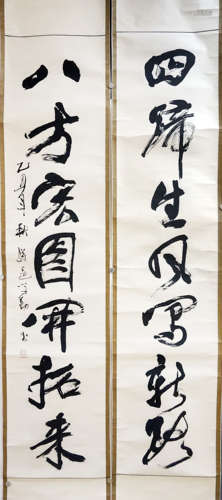 四蹄生风写新路
八方宏图开拓来
乙丑年秋
书